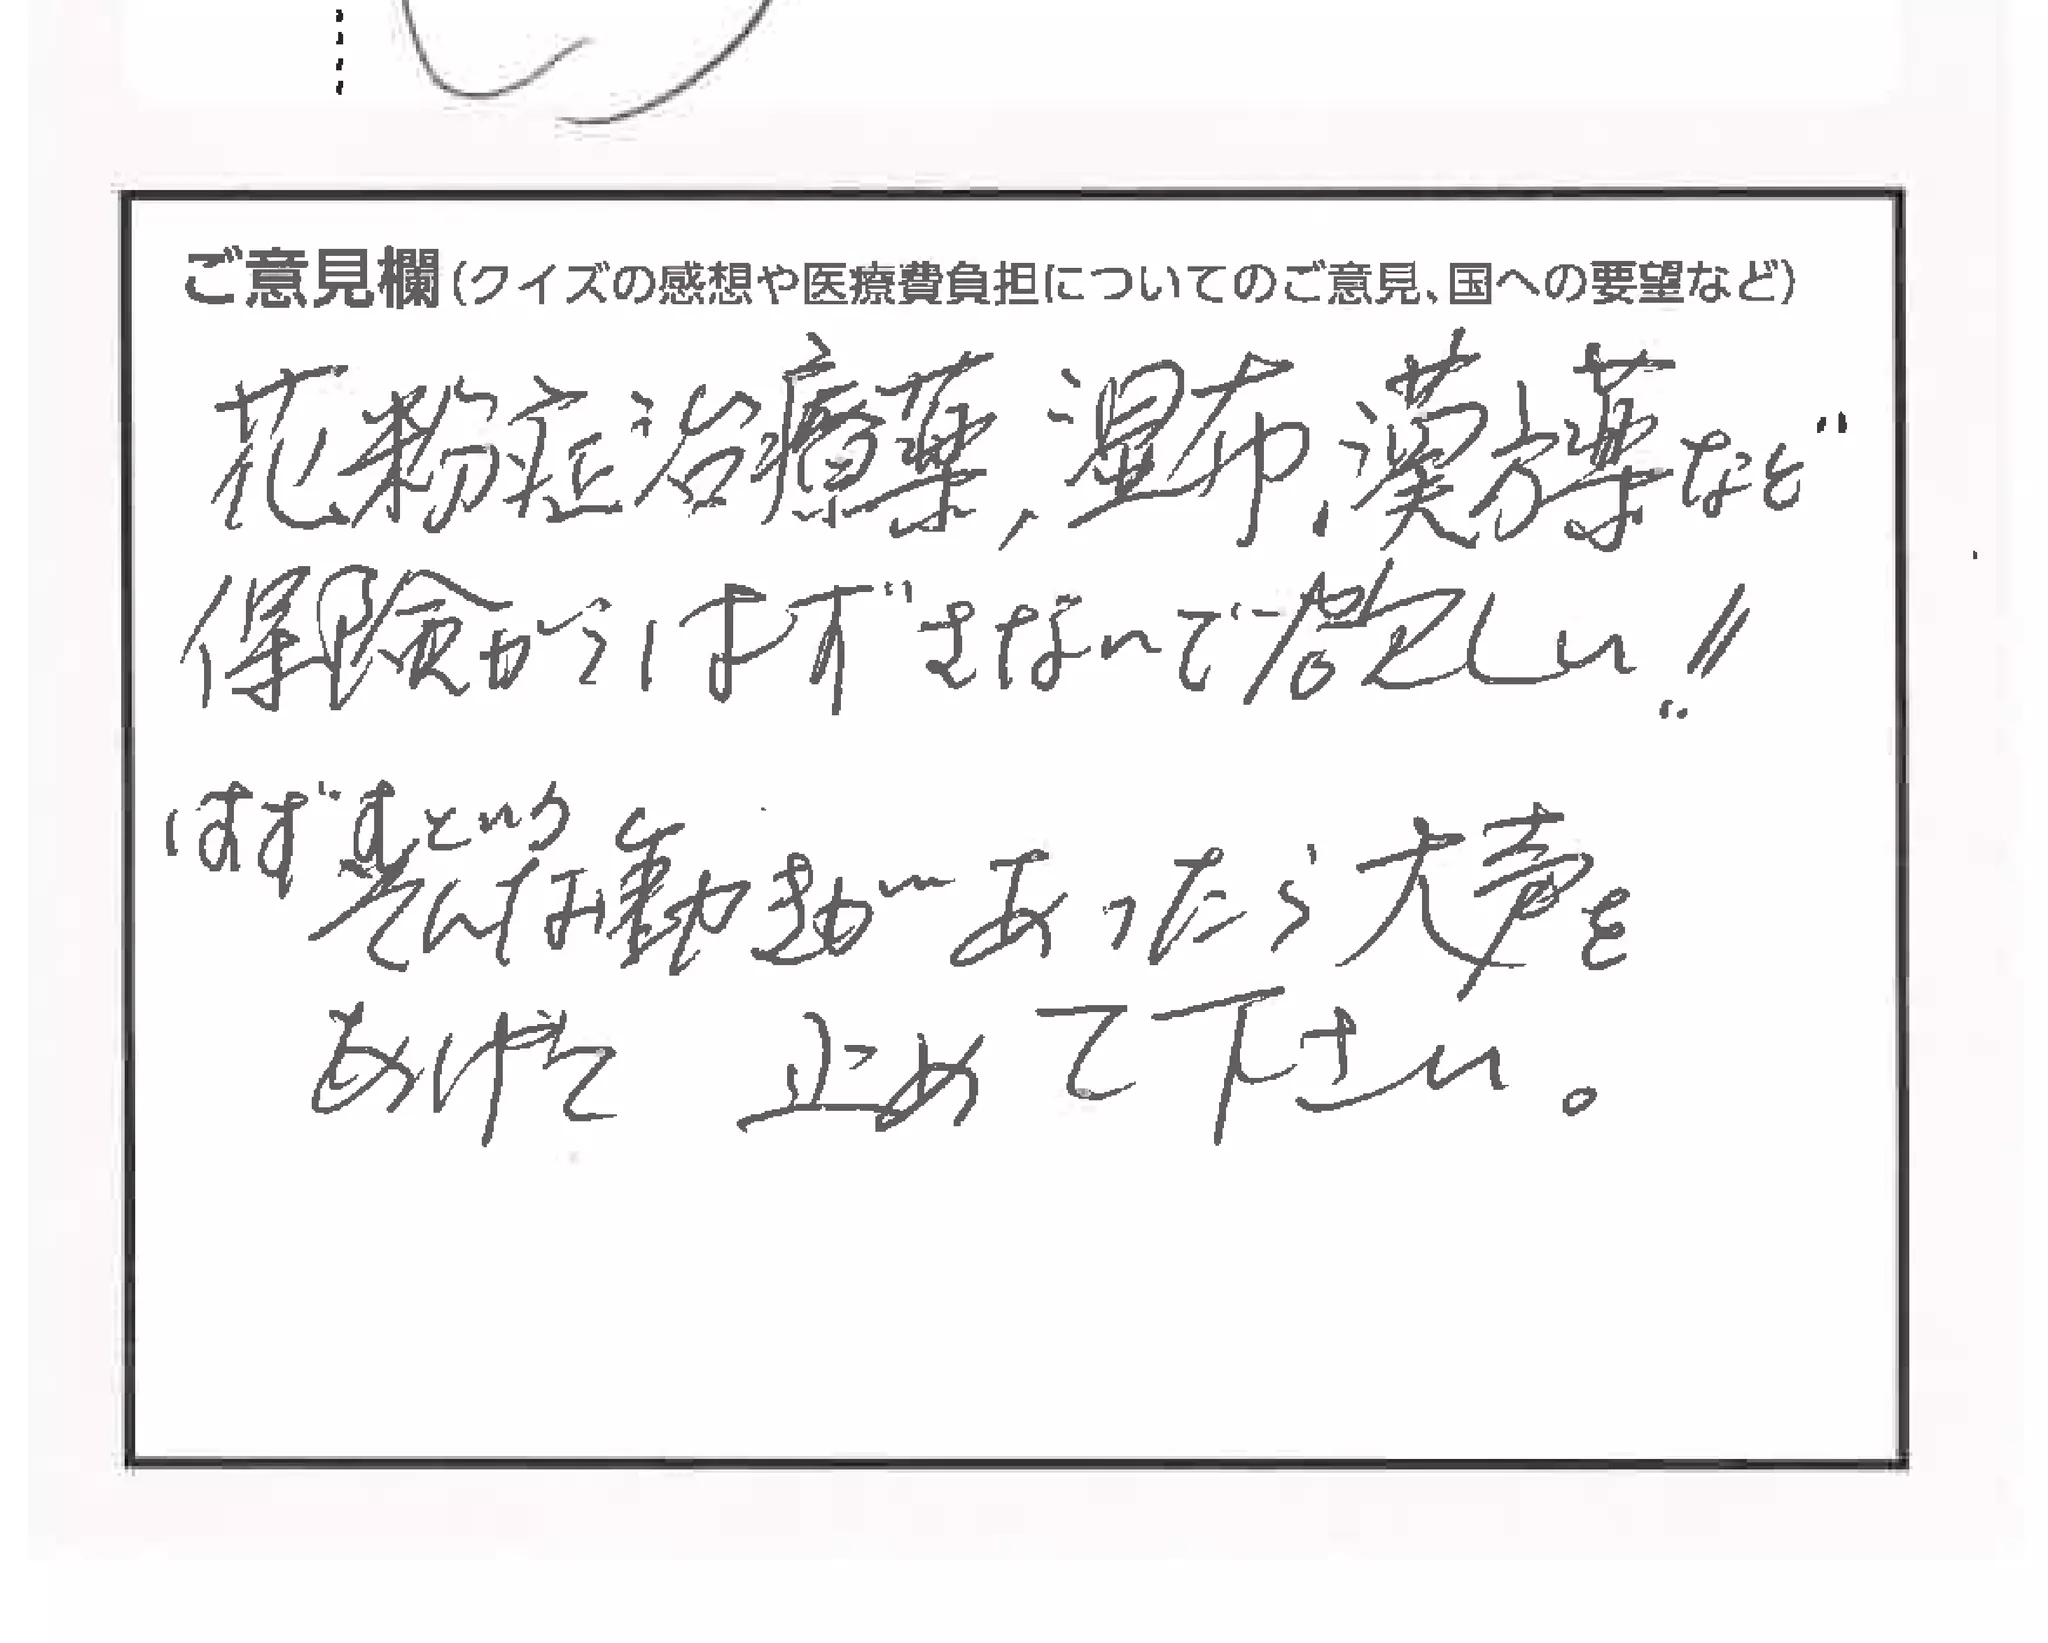 ご意見欄(クイズの感想や医療費負担についてのご意見、国への要望など)
花粉症治療薬,湿布、漢方薬など
保険からはずさないで欲しい!!
はずすという
そんな動きがあったら大声を
あげて 止めて下さい。